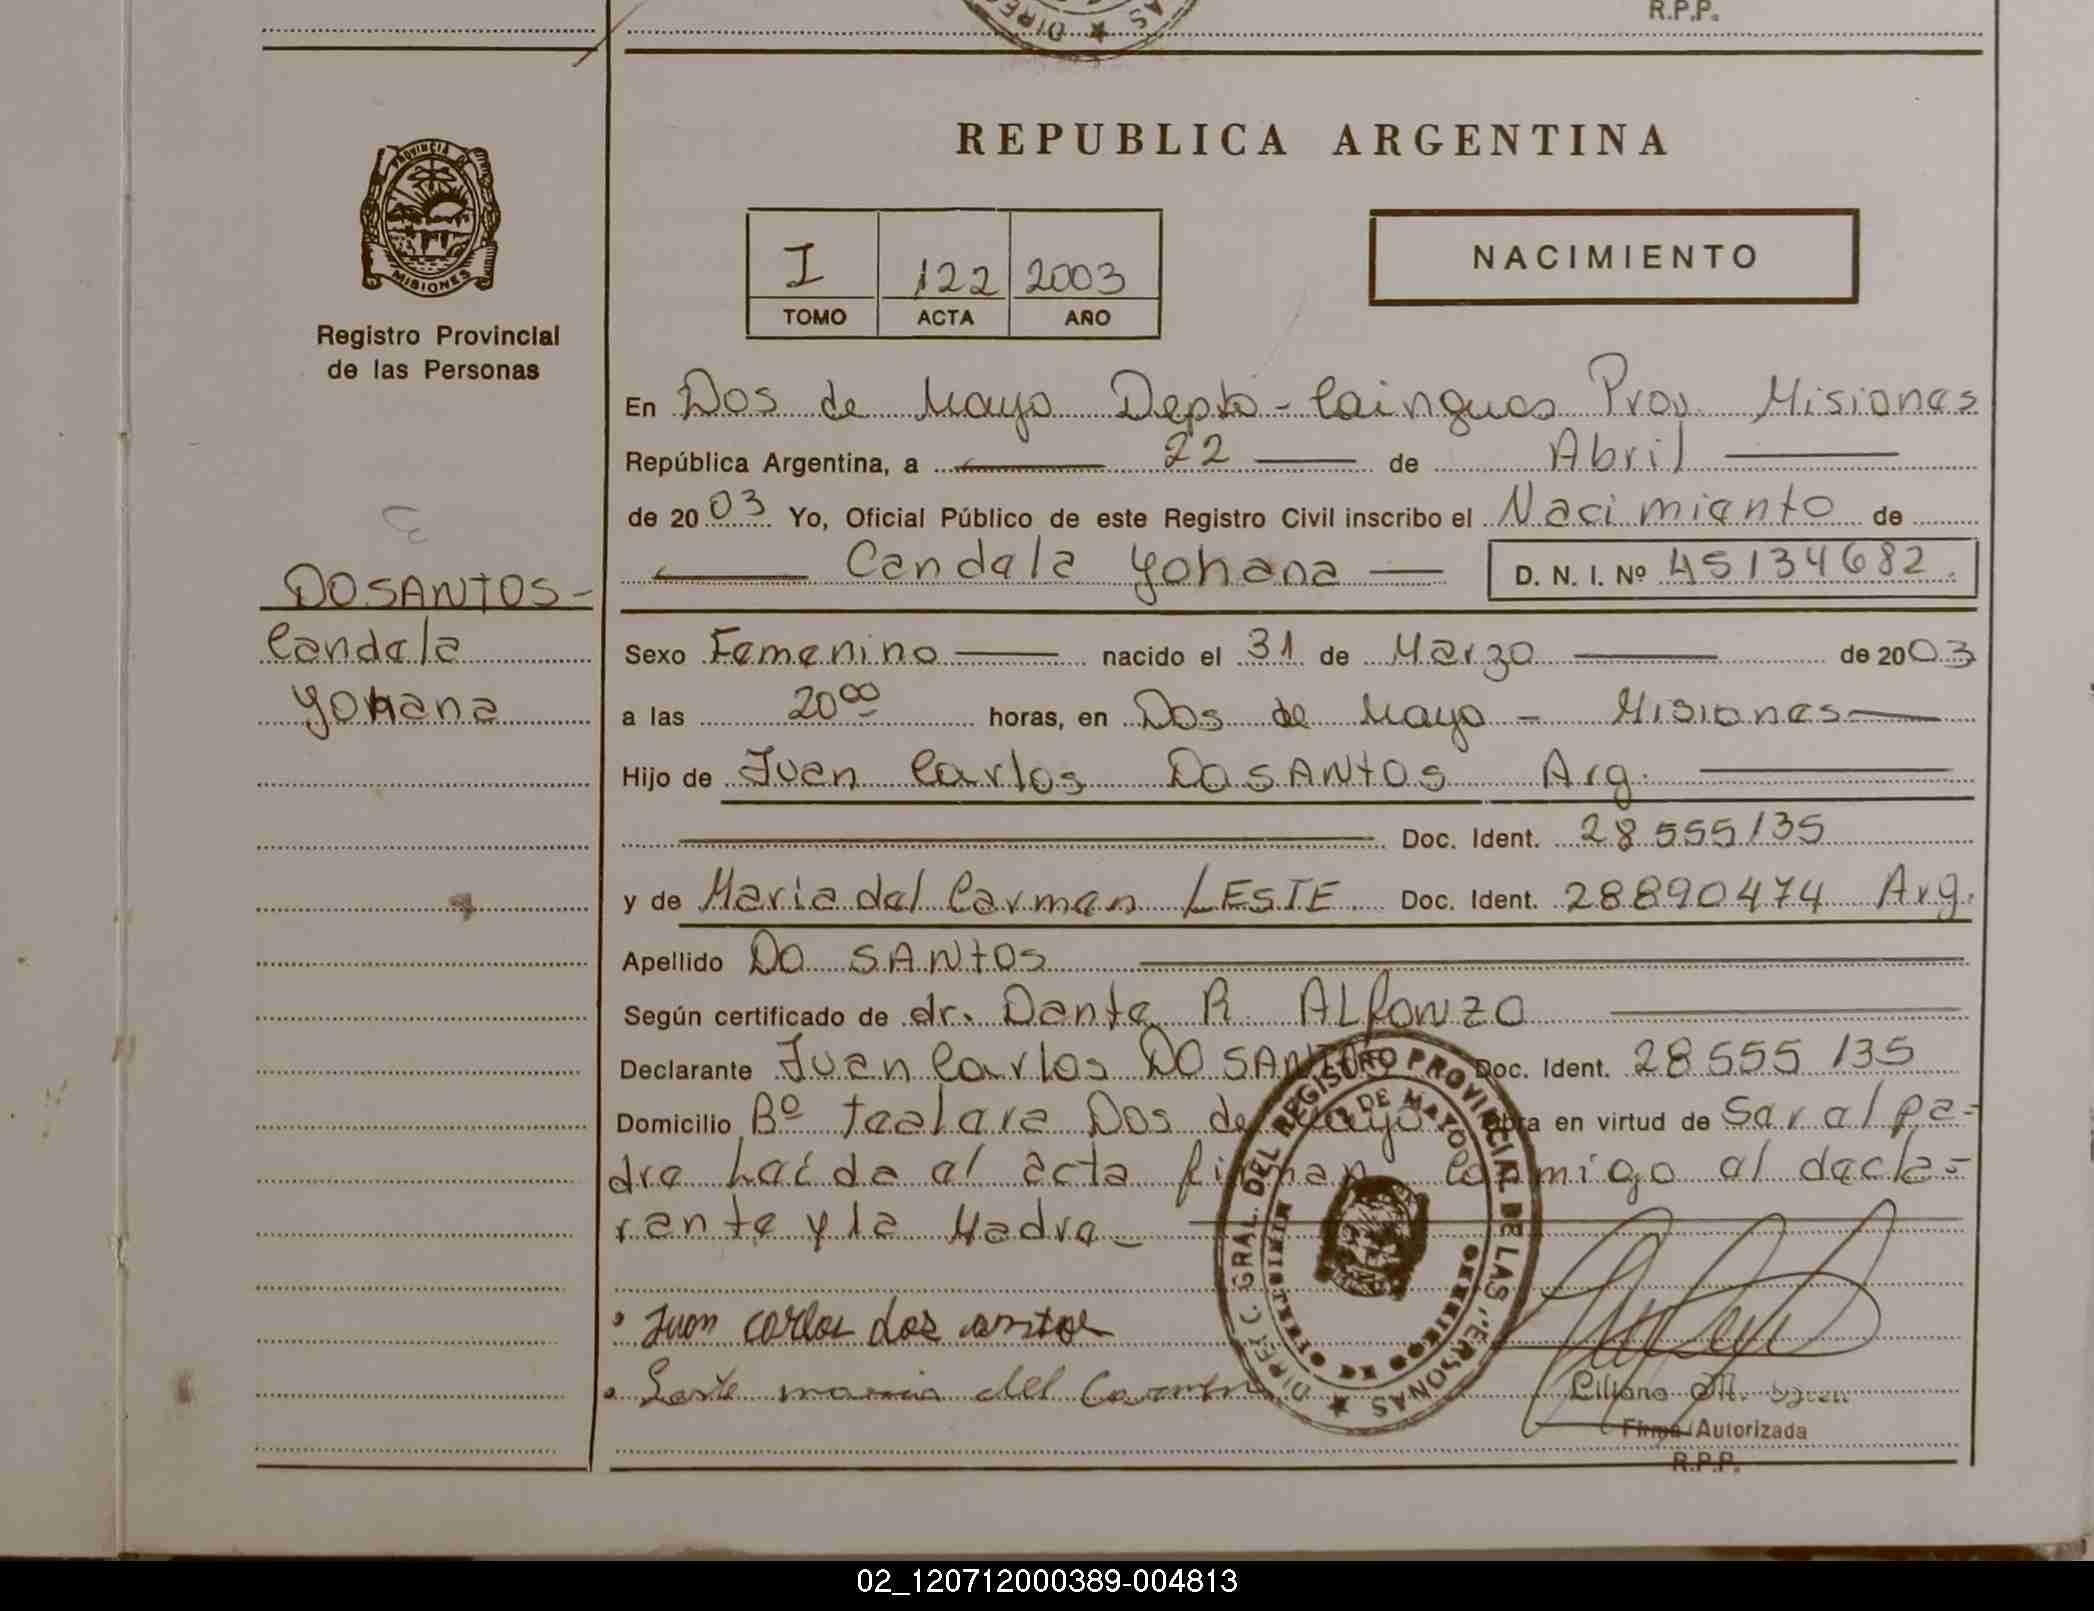 R.P.P.
REPUBLICA ARGENTINA
PROVINCIA DE
MISIONES
Registro Provincial
de las Personas
I 122 2003
TOMO ACTA AÑO
NACIMIENTO
En Dos de Mayo Depto - Cainguas Prov. Misiones
República Argentina, a 22 de Abril
de 2003 Yo, Oficial Público de este Registro Civil inscribo el Nacimiento de
Candela Yohana D. N. I. Nº 45134682.
DO SANTOS -
Candela
Yohana
Sexo Femenino nacido el 31 de Marzo de 2003
a las 20 00 horas, en Dos de Mayo - Misiones
Hijo de Juan Carlos DO SANTOS Arg.
Doc. Ident. 28 555 135
y de Maria del Carmen LESTE Doc. Ident. 28890474 Arg.
Apellido DO SANTOS
Según certificado de dr. Dante R. ALFONZO
Declarante Juan Carlos DO SANTOS Doc. Ident. 28 555 135
Domicilio Bº tealera Dos de Mayo Obra en virtud de Ser el pa-
dre Leída el acta firman conmigo el decla-
rante y la Madre -
Juan carlos dos antos
Leste maria del Carmen
DIREC. GRAL. DEL REGISTRO PROVINCIAL DE LAS PERSONAS
2 DE MAYO
Liliana M.
Firma Autorizada
R.P.P.
02_120712000389-004813